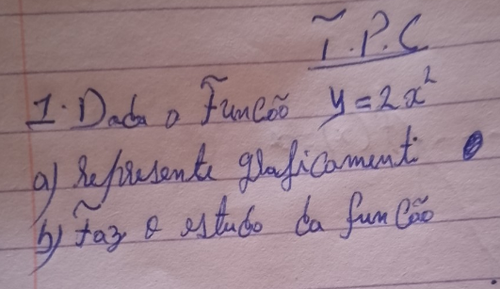 T.P.C
1. Dada o Funcão y = 2x²
a) represente graficamenti
b) Faz o estudo da função